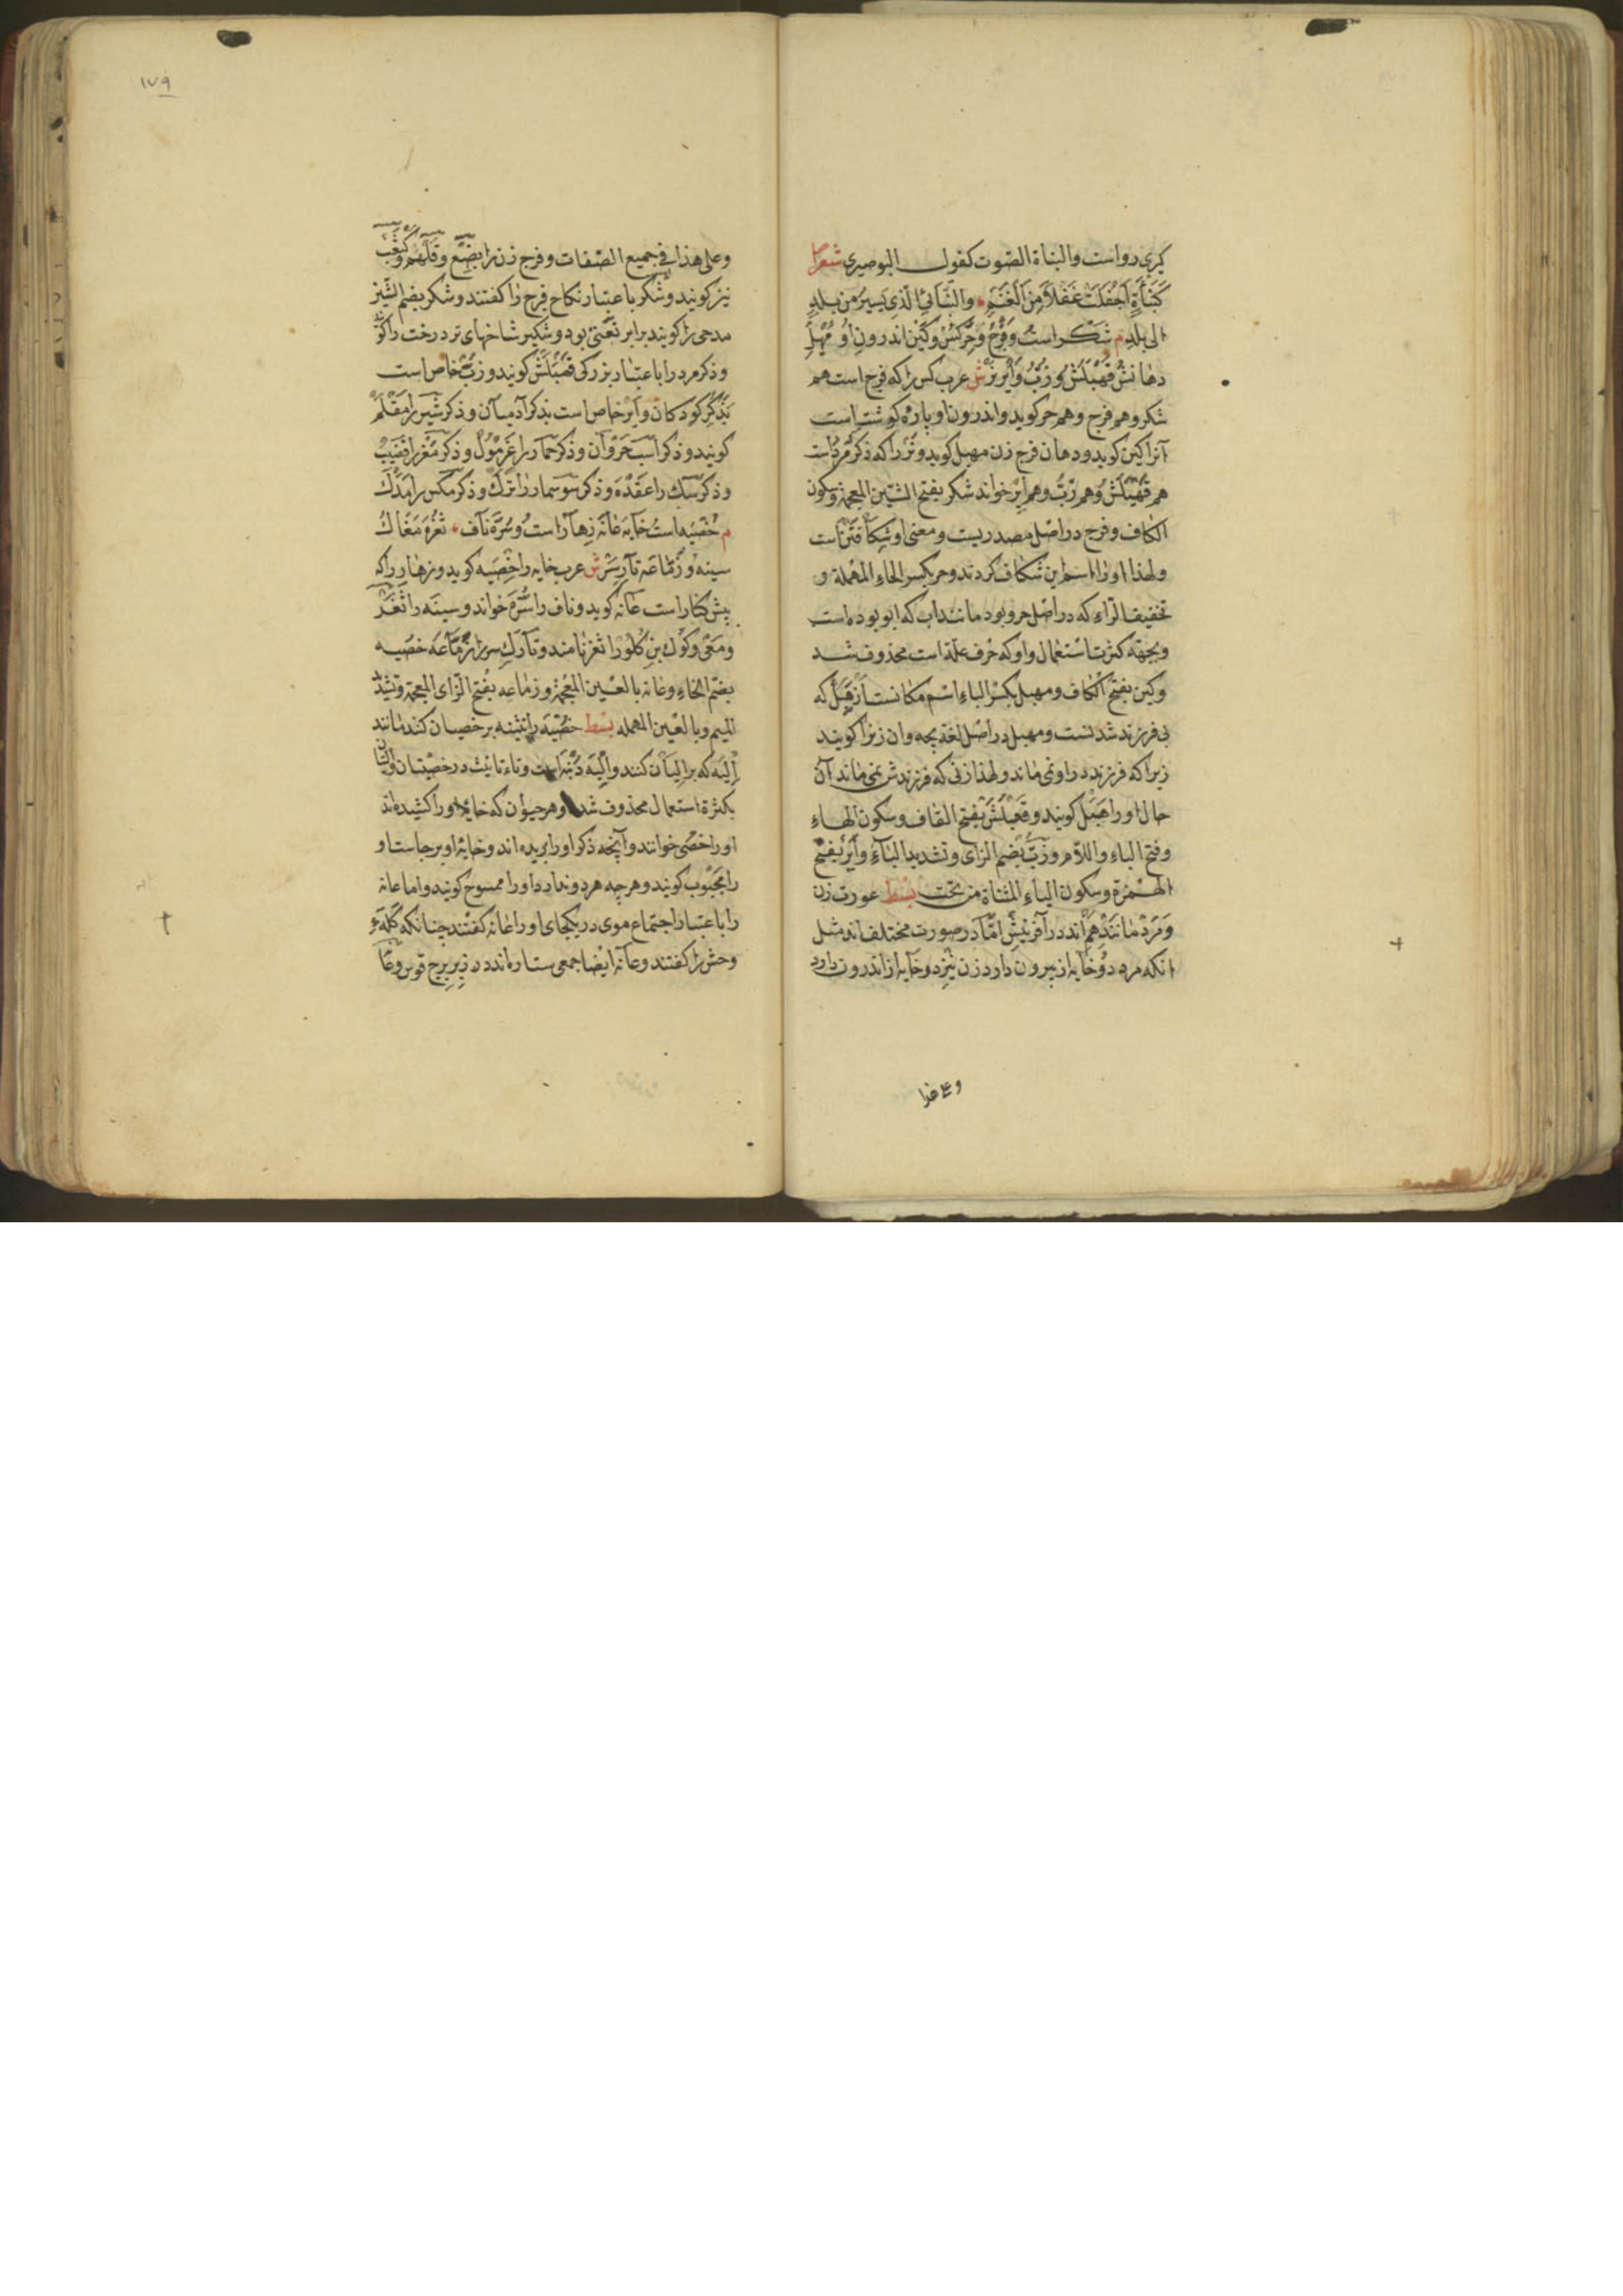 کیری رواست والنبأة الصّوت کقول البوصیری شعرا
کَنَبْأَةٍ اَجْفَلَتْ غَفَلاً مِنَ الْغَنَمِ والنّانیُ الّذی یسیرُ من بلدٍ
الی بلدٍ م شَکَر است و فَرْج و حِرْ کُسْ و کَیْن اندرونِ او مَهبِل
دهانش قَهْبَلَش و زُبّ و اَیر نَر ش عرب کس را که فرج است هم
شکر و هم فرج و هم حر کوید واندرون او پاره کوشت است
آنرا کین کوید و دهان فرج زن مهبل کوید و نر را که ذکر مرد است
هم قهبلش و هم زبّ و هم ایر خواند شکر بفتح الشین المعجمة وسکون
الکاف و فرج در اصل مصدریست و معنی او شکافتن است
ولهذا او را اسم این شکاف کردند و حر بکسر الحاء المهملة و
تخفیف الرّاء که در اصل حرو بود مانند اب که ابو بوده است
و بجهة کثرت استعمال واو که حرف علّة است محذوف شد
و کین بفتح الکاف و مهبل بکسر الباء اسم مکانست از قبل که
بی فرزند شدنست و مهبل در اصل لغة بچه وان زنرا کویند
زیرا که فرزند در او نمی ماند و لهذا زنی که فرزندش نمی ماند آن
حال او را هبل کویند و قهبلش بفتح القاف وسکون الهاء
وفتح الباء واللام و زبّ بضم الزای وتشدید الباء وایر بفتح
الهمزة وسکون الیاء المثناة من تحت بسط عورت زن
و مرد مانند هم اند در آفرینش امّا در صورت مختلف اند مثل
انکه مرد دو خایه از بیرون دارد زن نیز دو خایه از اندرون دارد
و علی هذا
۱۷۹
وعلی هذا فی جمیع الصّفات و فرج زن را بضع و قلهم و کعثب
نیز کویند و شکر باعتبار نکاح فرج را کفتند و شکر بضم الشین
مدحی را کویند برابر نعمتی بود و شکیر شاخهای تر درخت را کو
و ذکر مرد را باعتبار بزرکی قهبلش کویند و زبّ خاص است
بذکر کودکان و ایر خاص است بذکر آدمیان و ذکر شیر را مقلم
کویند و ذکر اسب جردان و ذکر حمار را غرمول و ذکر را قضیب
و ذکر سک را عقده و ذکر سوسمار را نزک و ذکر مکس را
م خصیه است خایه عانه زهار است و سرّه ناف ثغره مغاک
سینه و زمّاعه تارسر ش عرب خایه را خصیه کوید و زهار را که
پیش کنار است عانه کوید و ناف را سُرّه خواند و سینه را ثغر
و مغی و کوک بن کلو را ثغر نامند و تارک سر را زمّاعه خصیه
بضم الخاء و عانه بالعین المعجمة و زماعه بفتح الزای المعجمة و تشدید
المیم وبالعین المهمله بسط خصیه را تثنیه بر خصیان کنند مانند
اِلیه که بر اِلیان کنند و الیه دنبه است و تاء تانیث در خصیتان و الیتان
بکثرة استعمال محذوف شد و هر حیوان که خایه او را کشیده اند
او را خصی خوانند و آنچه ذکر او را بریده اند و خایه او برجاست او
را مجبوب کویند و هر چه هر دو ندارد او را ممسوح کویند و اما عانه
را باعتبار اجتماع موی در یکجای او را عانه کفتند چنانکه کله ء
وحش را کفتند و عانه ایضا جمعی ستاره اند در زیر برج قوس و عا